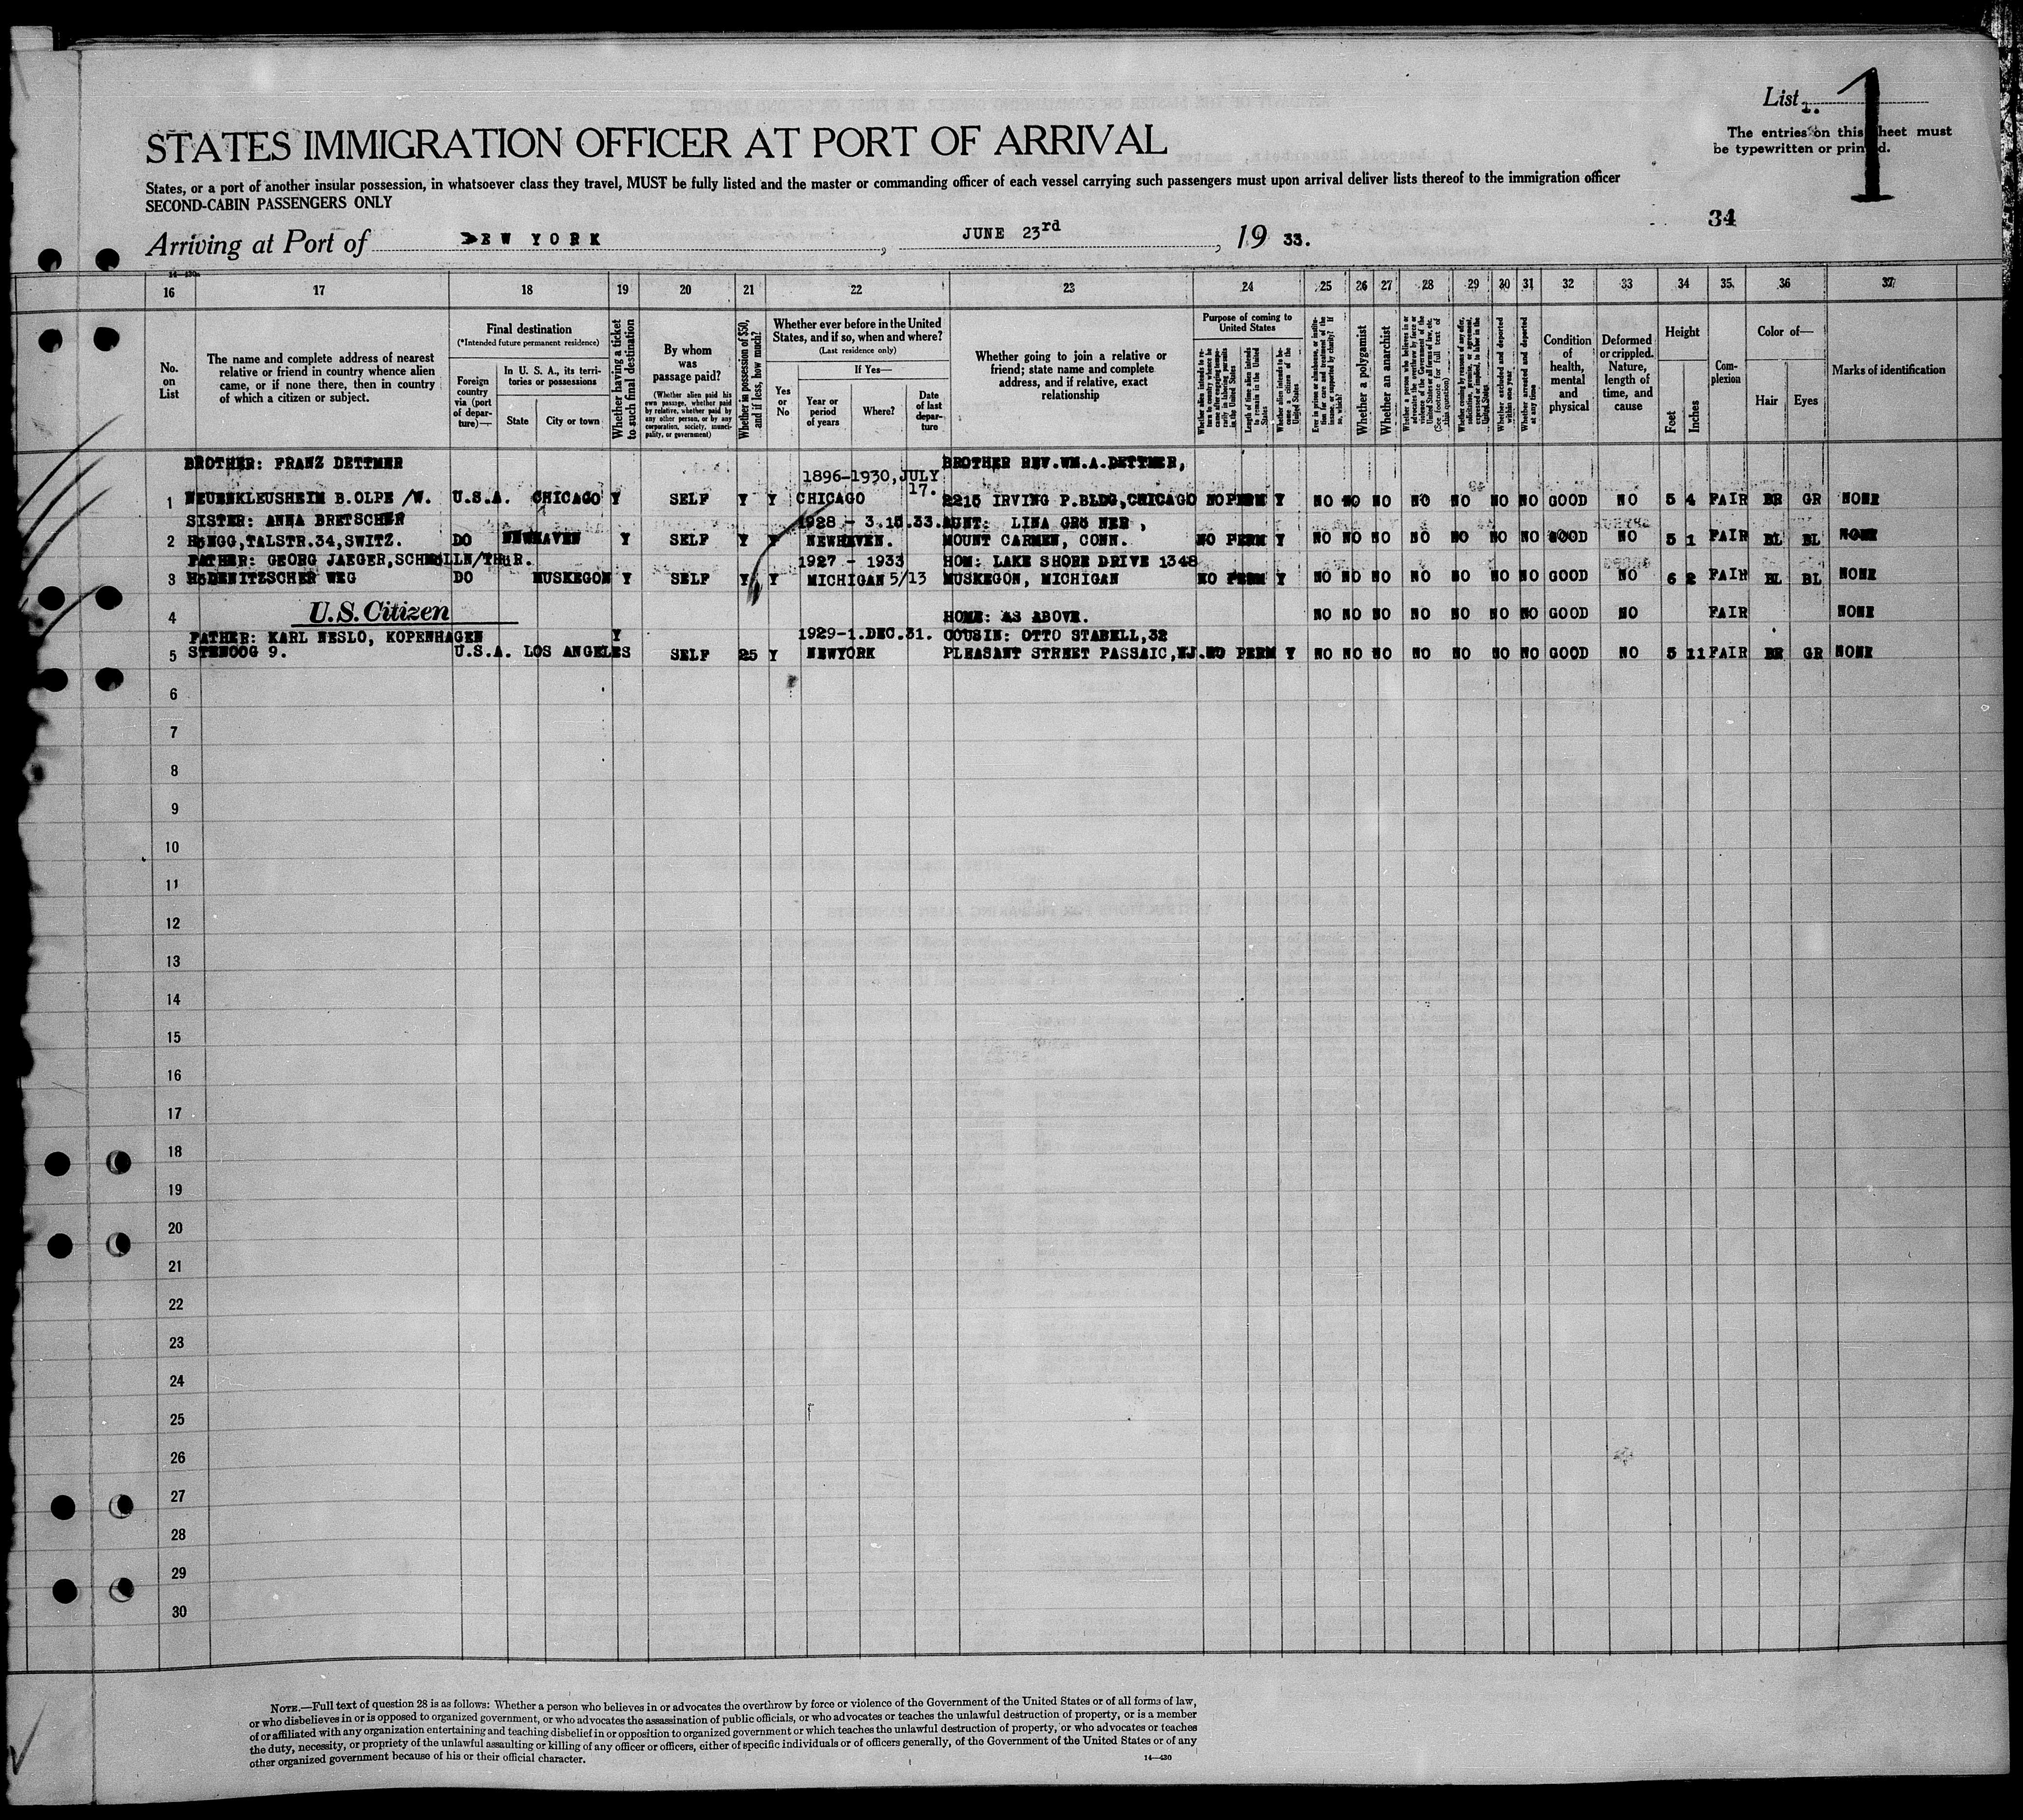 List 1.
1
The entries on this sheet must
be typewritten or printed.
STATES IMMIGRATION OFFICER AT PORT OF ARRIVAL
States, or a port of another insular possession, in whatsoever class they travel, MUST be fully listed and the master or commanding officer of each vessel carrying such passengers must upon arrival deliver lists thereof to the immigration officer
SECOND-CABIN PASSENGERS ONLY
34
Arriving at Port of EW YORK, JUNE 23rd, 19 33.
14—430
16 17 18 19 20 21 22 23 24 25 26 27 28 29 30 31 32 33 34 35 36 37
No. on List
The name and complete address of nearest relative or friend in country whence alien came, or if none there, then in country of which a citizen or subject.
Final destination
(*Intended future permanent residence)
Foreign country via (port of departure)—
In U. S. A., its territories or possessions
State
City or town
Whether having a ticket to such final destination
By whom was passage paid?
(Whether alien paid his own passage, whether paid by relative, whether paid by any other person, or by any corporation, society, municipality, or government)
Whether in possession of $50, and if less, how much?
Whether ever before in the United States, and if so, when and where?
(Last residence only)
Yes or No
If Yes—
Year or period of years
Where?
Date of last departure
Whether going to join a relative or friend; state name and complete address, and if relative, exact relationship
Purpose of coming to United States
Length of time alien intends to remain in the United States
Whether alien intends to become a citizen of the United States
Whether a polygamist
Whether an anarchist
(See footnote for full text of this question)
Whether excluded and deported within one year
Whether arrested and deported at any time
Condition of health, mental and physical
Deformed or crippled. Nature, length of time, and cause
Height
Feet
Inches
Complexion
Color of—
Hair
Eyes
Marks of identification
BROTHER: FRANZ DETTMER 1896-1930,JULY 17. BROTHER REV.WM.A.DETTMER,
1 NEUENKLEUSHEIM B.OLPE /W. U.S.A. CHICAGO Y SELF Y Y CHICAGO 2215 IRVING P.BLDG,CHICAGO NO PERM Y NO NO NO NO NO NO NO GOOD NO 5 4 FAIR BR GR NONE
SISTER: ANNA BRETSCHER 1928 - 3.15.33. AUNT: LINA GRÖ NER ,
2 HöNGG,TALSTR.34,SWITZ. DO NEWHAVEN Y SELF Y Y NEWHAVEN. MOUNT CARMEN, CONN. NO PERM Y NO NO NO NO NO NO NO GOOD NO 5 1 FAIR BL BL NONE
FATHER: GEORG JAEGER,SCHMÖLLN/THüR. 1927 - 1933 HOM: LAKE SHORE DRIVE 1348
3 HöDENITZSCHER WEG DO MUSKEGON Y SELF Y Y MICHIGAN 5/13 MUSKEGON, MICHIGAN NO PERM Y NO NO NO NO NO NO NO GOOD NO 6 2 FAIR BL BL NONE
4 U.S. Citizen HOME: AS ABOVE. NO NO NO NO NO NO NO GOOD NO FAIR NONE
FATHER: KARL NESLO, KOPENHAGEN Y 1929-1.DEC.31. COUSIN: OTTO STABELL,32
5 STENOOG 9. U.S.A. LOS ANGELES SELF 25 Y NEWYORK PLEASANT STREET PASSAIC,NJ. NO PERM Y NO NO NO NO NO NO NO GOOD NO 5 11 FAIR BR GR NONE
6
7
8
9
10
11
12
13
14
15
16
17
18
19
20
21
22
23
24
25
26
27
28
29
30
NOTE.—Full text of question 28 is as follows: Whether a person who believes in or advocates the overthrow by force or violence of the Government of the United States or of all forms of law,
or who disbelieves in or is opposed to organized government, or who advocates the assassination of public officials, or who advocates or teaches the unlawful destruction of property, or is a member
of or affiliated with any organization entertaining and teaching disbelief in or opposition to organized government or which teaches the unlawful destruction of property, or who advocates or teaches
the duty, necessity, or propriety of the unlawful assaulting or killing of any officer or officers, either of specific individuals or of officers generally, of the Government of the United States or of any
other organized government because of his or their official character.
14—430